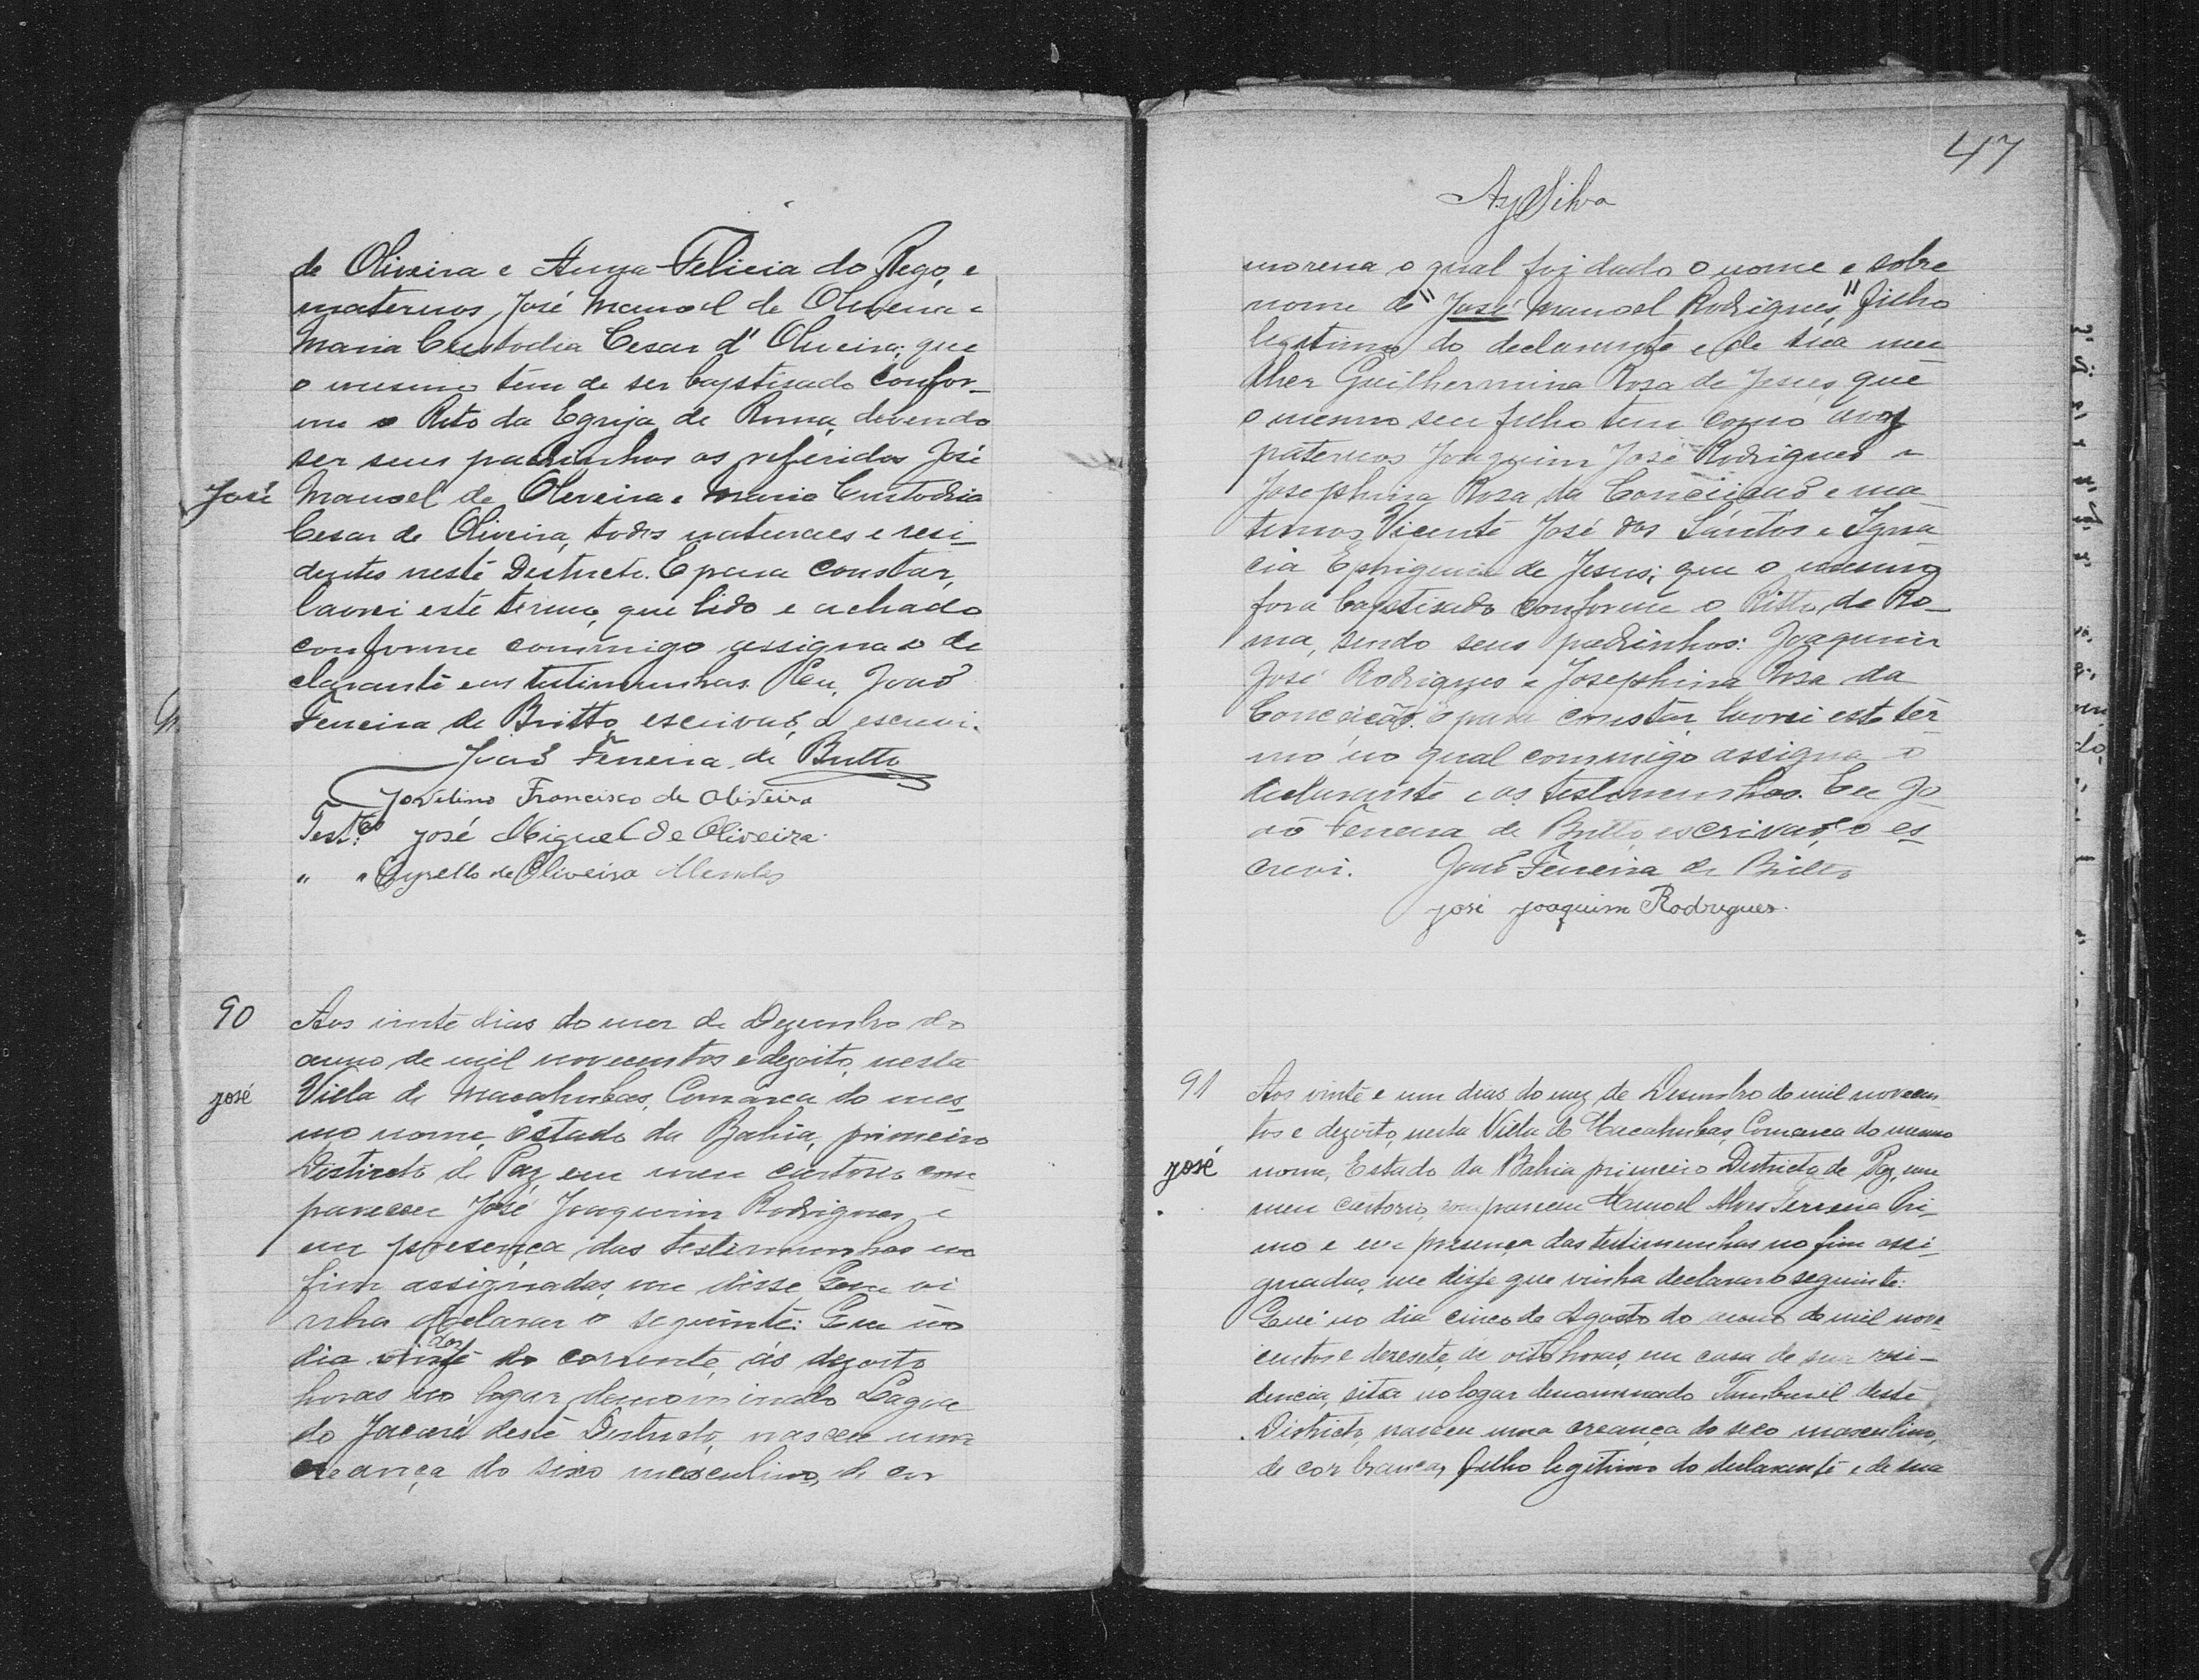 de Oliveira e Anna Felicia do Rego, e
maternos, José Manoel de Oliveira e
Maria Custodia Cesar d'Oliveira; que
o mesmo tem de ser baptisado confor-
me o Rito da Egreja de Roma, devendo
ser seus padrinhos os referidos José
José Manoel de Oliveira e Maria Custodia
Cesar de Oliveira, todos naturaes e resi-
dentes neste Districto. E para constar,
lavrei este termo, que lido e achado
conforme commigo assigna o de
clarante e as testimunhas. Eu, João
Ferreira de Britto, escrivão, o escrevi.
João Ferreira de Britto
Jovelino Francisco de Oliveira
Test.as José Miguel de Oliveira
" " Cyrello de Oliveira Mendes
90 Aos vinte dias do mez de Dezembro do
anno de mil novecentos e dezoito, nesta
José Villa de Macahubas, Comarca do mes-
mo nome, Estado da Bahia, primeiro
Districto de Paz, em meu cartorio com
pareceu José Joaquim Rodrigues e
em presença das testimunhas no
fim assignadas, me disse que vi
nha declarar o seguinte: Que no
dia dois do corrente, ás dezoito
horas no logar denominado Lagoa
do Jacaré deste Districto, nasceu uma
creança do sexo masculino, de cor
47
Ay Silva
morena o qual foi dado o nome e sobre
nome de "José Manoel Rodrigues" filho
legitimo do declarante e de sua mu
lher Guilhermina Rosa de Jesus, que
o mesmo seu filho tem como avos
paternos Joaquim José Rodrigues e
Josephina Rosa da Conceicão e ma
ternos Vicente José dos Santos e Igna
cia Ephigenia de Jesus; que o mesmo
fora baptisado conforme o Ritto de Ro-
ma, sendo seus padrinhos: Joaquim
José Rodrigues e Josephina Rosa da
Conceição. E para constar, lavrei este ter
mo no qual commigo assigna o
declarante e as testimunhas. Eu Jo
ão Ferreira de Britto, escrivão, o es-
crevi. João Ferreira de Britto
José Joaquim Rodrigues.
91 Aos vinte e um dias do mez de Desembro de mil novecen
tos e dezoito, nesta Villa de Macahubas, Comarca do mesmo
José nome, Estado da Bahia primeiro Districto de Paz, em
meu cartorio, compareceu Manoel Alves Ferreira Pri-
mo e em presença das testimunhas no fim assi-
gnadas, me disse que vinha declarar o seguinte:
Que no dia cinco de Agosto do anno de mil nove
centos e desesete, ás oito horas, em casa de sua resi-
dencia, sita no logar denominado Tamburil deste
Districto, nasceu uma creança do sexo masculino,
de cor branca, filho legitimo do declarante e de sua